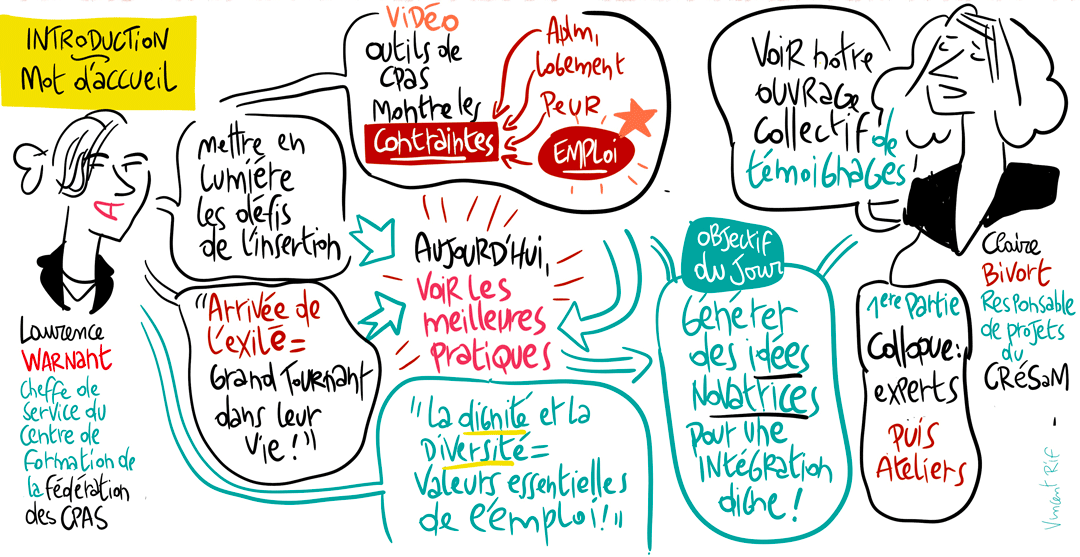 INTRODUCTION
Mot d'accueil
ViDÉO
outils de
CPAS
Montre les
Contraintes
Adm,
Logement
PEUR
EMPLOi
mettre en
Lumière
les défis
de l'insertion
"Arrivée de
l'exilé=
Grand Tournant
dans leur
Vie!"
Laurence
WARNANT
Cheffe de
Service du
Centre de
Formation de
la Fédération
des CPAS
AUJOURD'HUI,
VoiR LES
meilleures
pratiques
"La dignité et la
Diversité=
Valeurs essentielles
de l'emploi!"
OBJECTIF
du Jour
Générer
des idées
Novatrices
pour une
INTÉGRATION
digne!
VoiR notre
OUVRAGE
Collectif de
témoignages
1ère Partie
Colloque:
experts
PUiS
Ateliers
Claire
Bivort
Responsable
de projets
du
CRéSaM
Vincent Rif